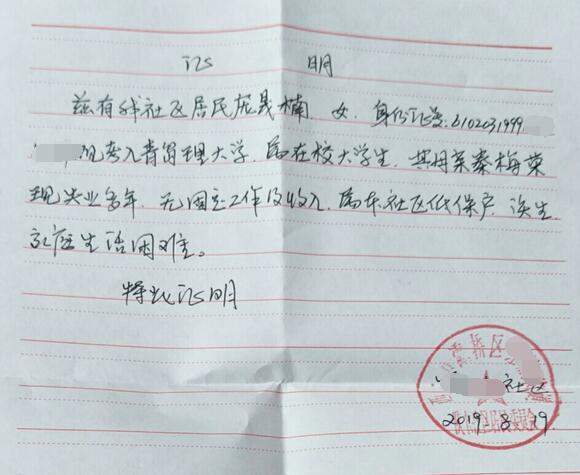 证 明
兹有我社区居民庞晟楠，女，身份证号：6102031999
现考入青岛理大学，属在校大学生，其母亲秦梅荣
现失业多年，无固定工作及收入，属本社区低保户，该生
家庭生活困难。
特此证明
社区
2019.8.19